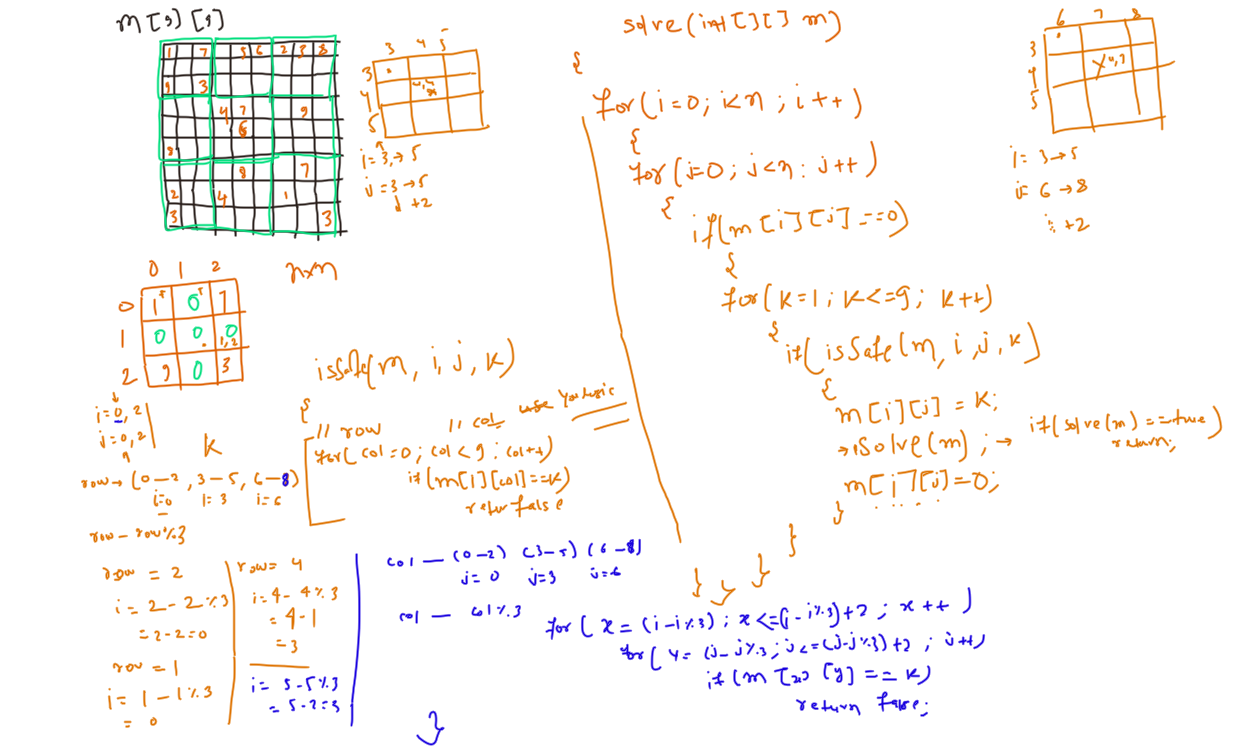 m[9][9]
1 7 5 6 2 3 8
9 3
4 7 9
6
8
8 7
2 4 1
3 3
3 4 5
3
4 4,4
5
i=3,→5
j=3→5
+2
n×n
0 1 2
0 1 0 7
1 0 0 0 1,2
2 9 0 3
i=0,2
j=0,2
k
row→(0–2,3–5,6–8)
i=0 i=3 i=6
row–row%3
row = 2
i=2–2%3
=2-2=0
row = 1
i=1–1%3
= 0
row= 4
i=4-4%3
=4-1
=3
i= 5-5%3
=5-2=3
issafe(m, i, j, k)
{
// row // col use your logic
for(col=0; col<9; col++)
if(m[i][col]==k)
return false
col — (0–2) (3–5) (6–8)
j=0 j=3 j=6
col — col%3
for( x = (i-i%3) ; x<=(i-i%3)+2 ; x++ )
for( y= (j-j%3 ; j<=(j-j%3)+2 ; j++)
if(m[x][y]==k)
return false;
}
solve(int[][] m)
{
for(i=0; i<n ; i++)
{
for(j=0; j<n: j++)
{
if(m[i][j]==0)
{
for(k=1; k<=9; k++)
{
if(isSafe(m, i,j,k)
{
m[i][j]=k;
→Solve(m) ;→ if(solve(m)==true)
return;
m[i][j]=0;
}
}
}
}
}
6 7 8
3
4 4,7
5
i= 3→5
j= 6→8
+2